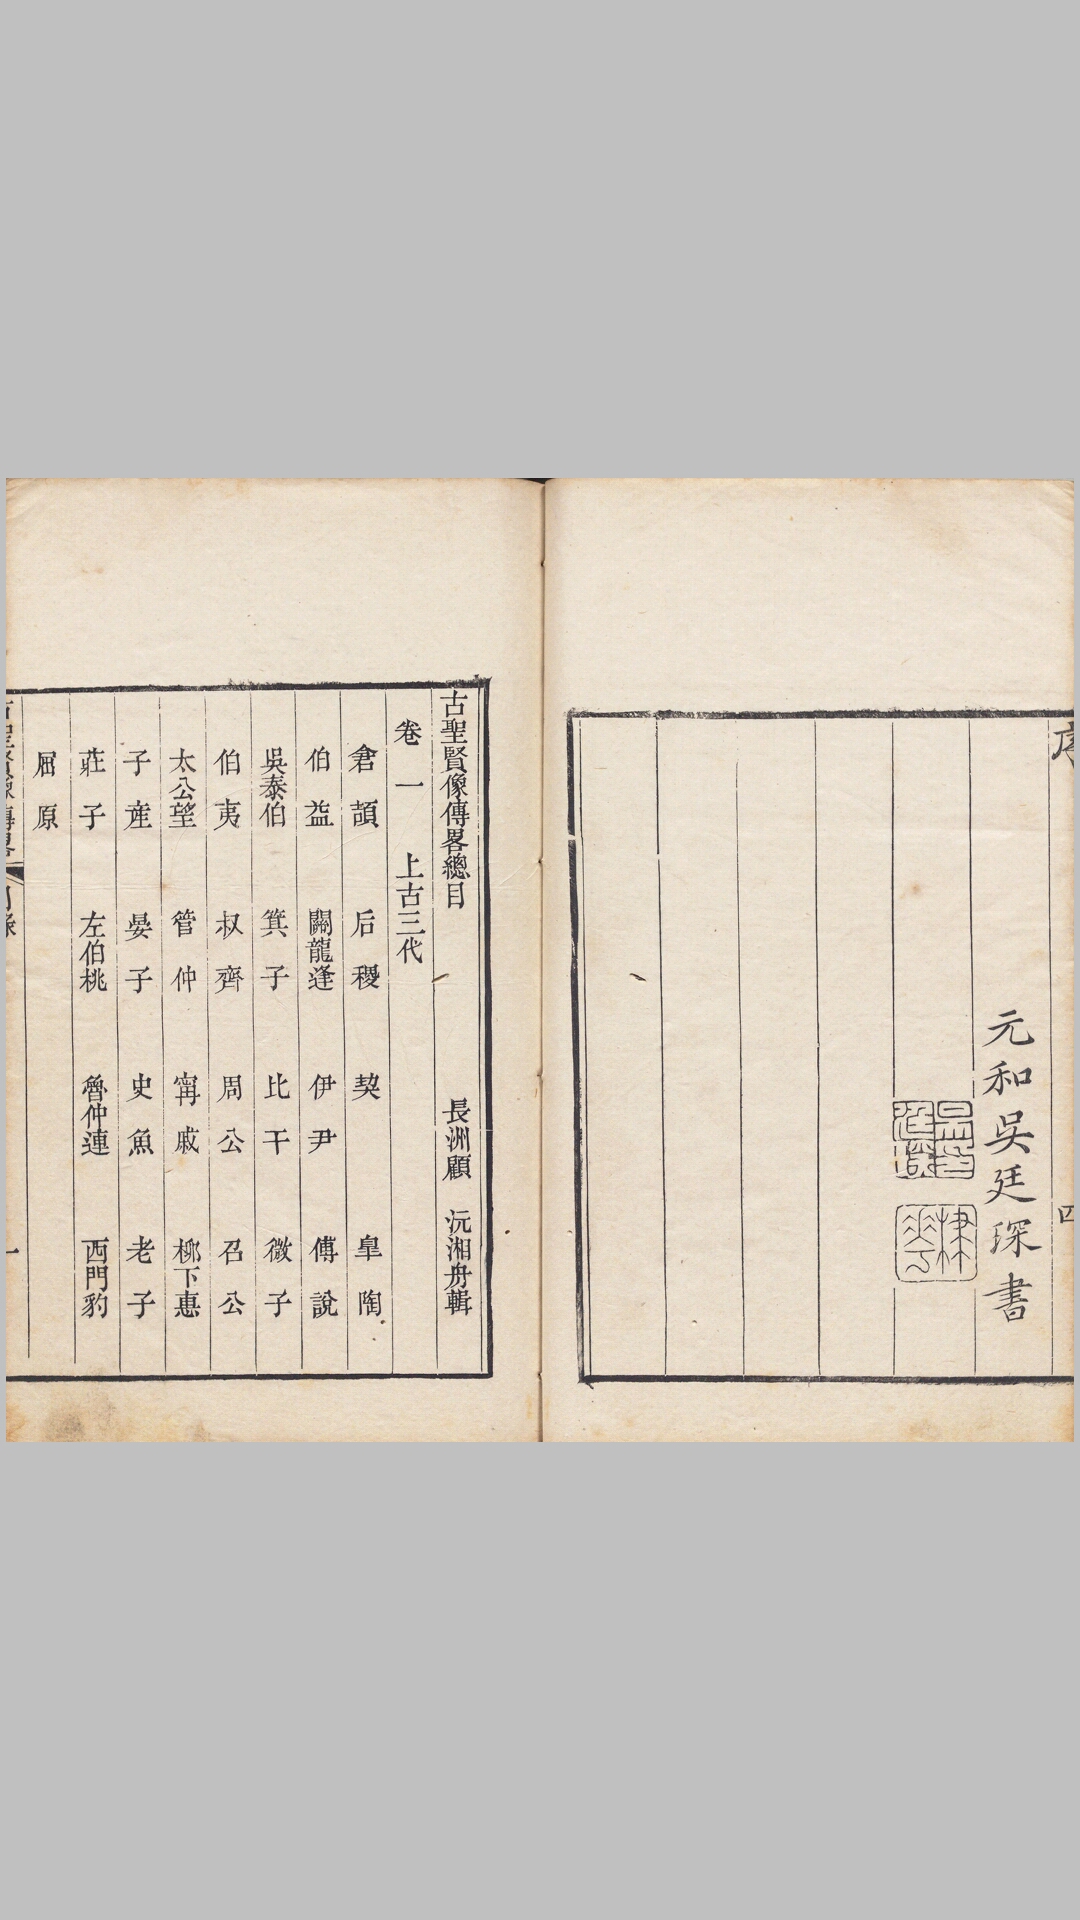 序
四
元和吳廷琛書
古聖賢像傳畧總目
長洲顧 沅湘舟輯
卷一 上古三代
倉頡 后稷 契 皐陶
伯益 關龍逄 伊尹 傅說
吳泰伯 箕子 比干 微子
伯夷 叔齊 周公 召公
太公望 管仲 甯戚 桺下惠
子產 晏子 史魚 老子
莊子 左伯桃 魯仲連 西門豹
屈原
古聖賢像傳畧 目錄 一